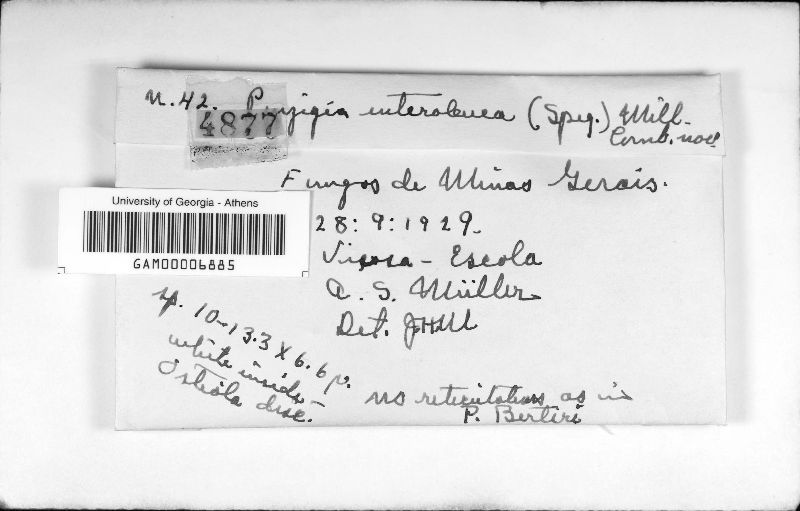 n. 42. Penzigia interoleuca (Speg.) Mill.
Comb. nov.
4877
Fungos de Minas Gerais.
University of Georgia - Athens
GAM00006885
28:9:1929.
Viçosa - Escola
A. S. Müller
Det. JHM
sp. 10-13.3 X 6.6 µ.
white inside.
Ostiola disc.
no reticulations as in
P. Berteri